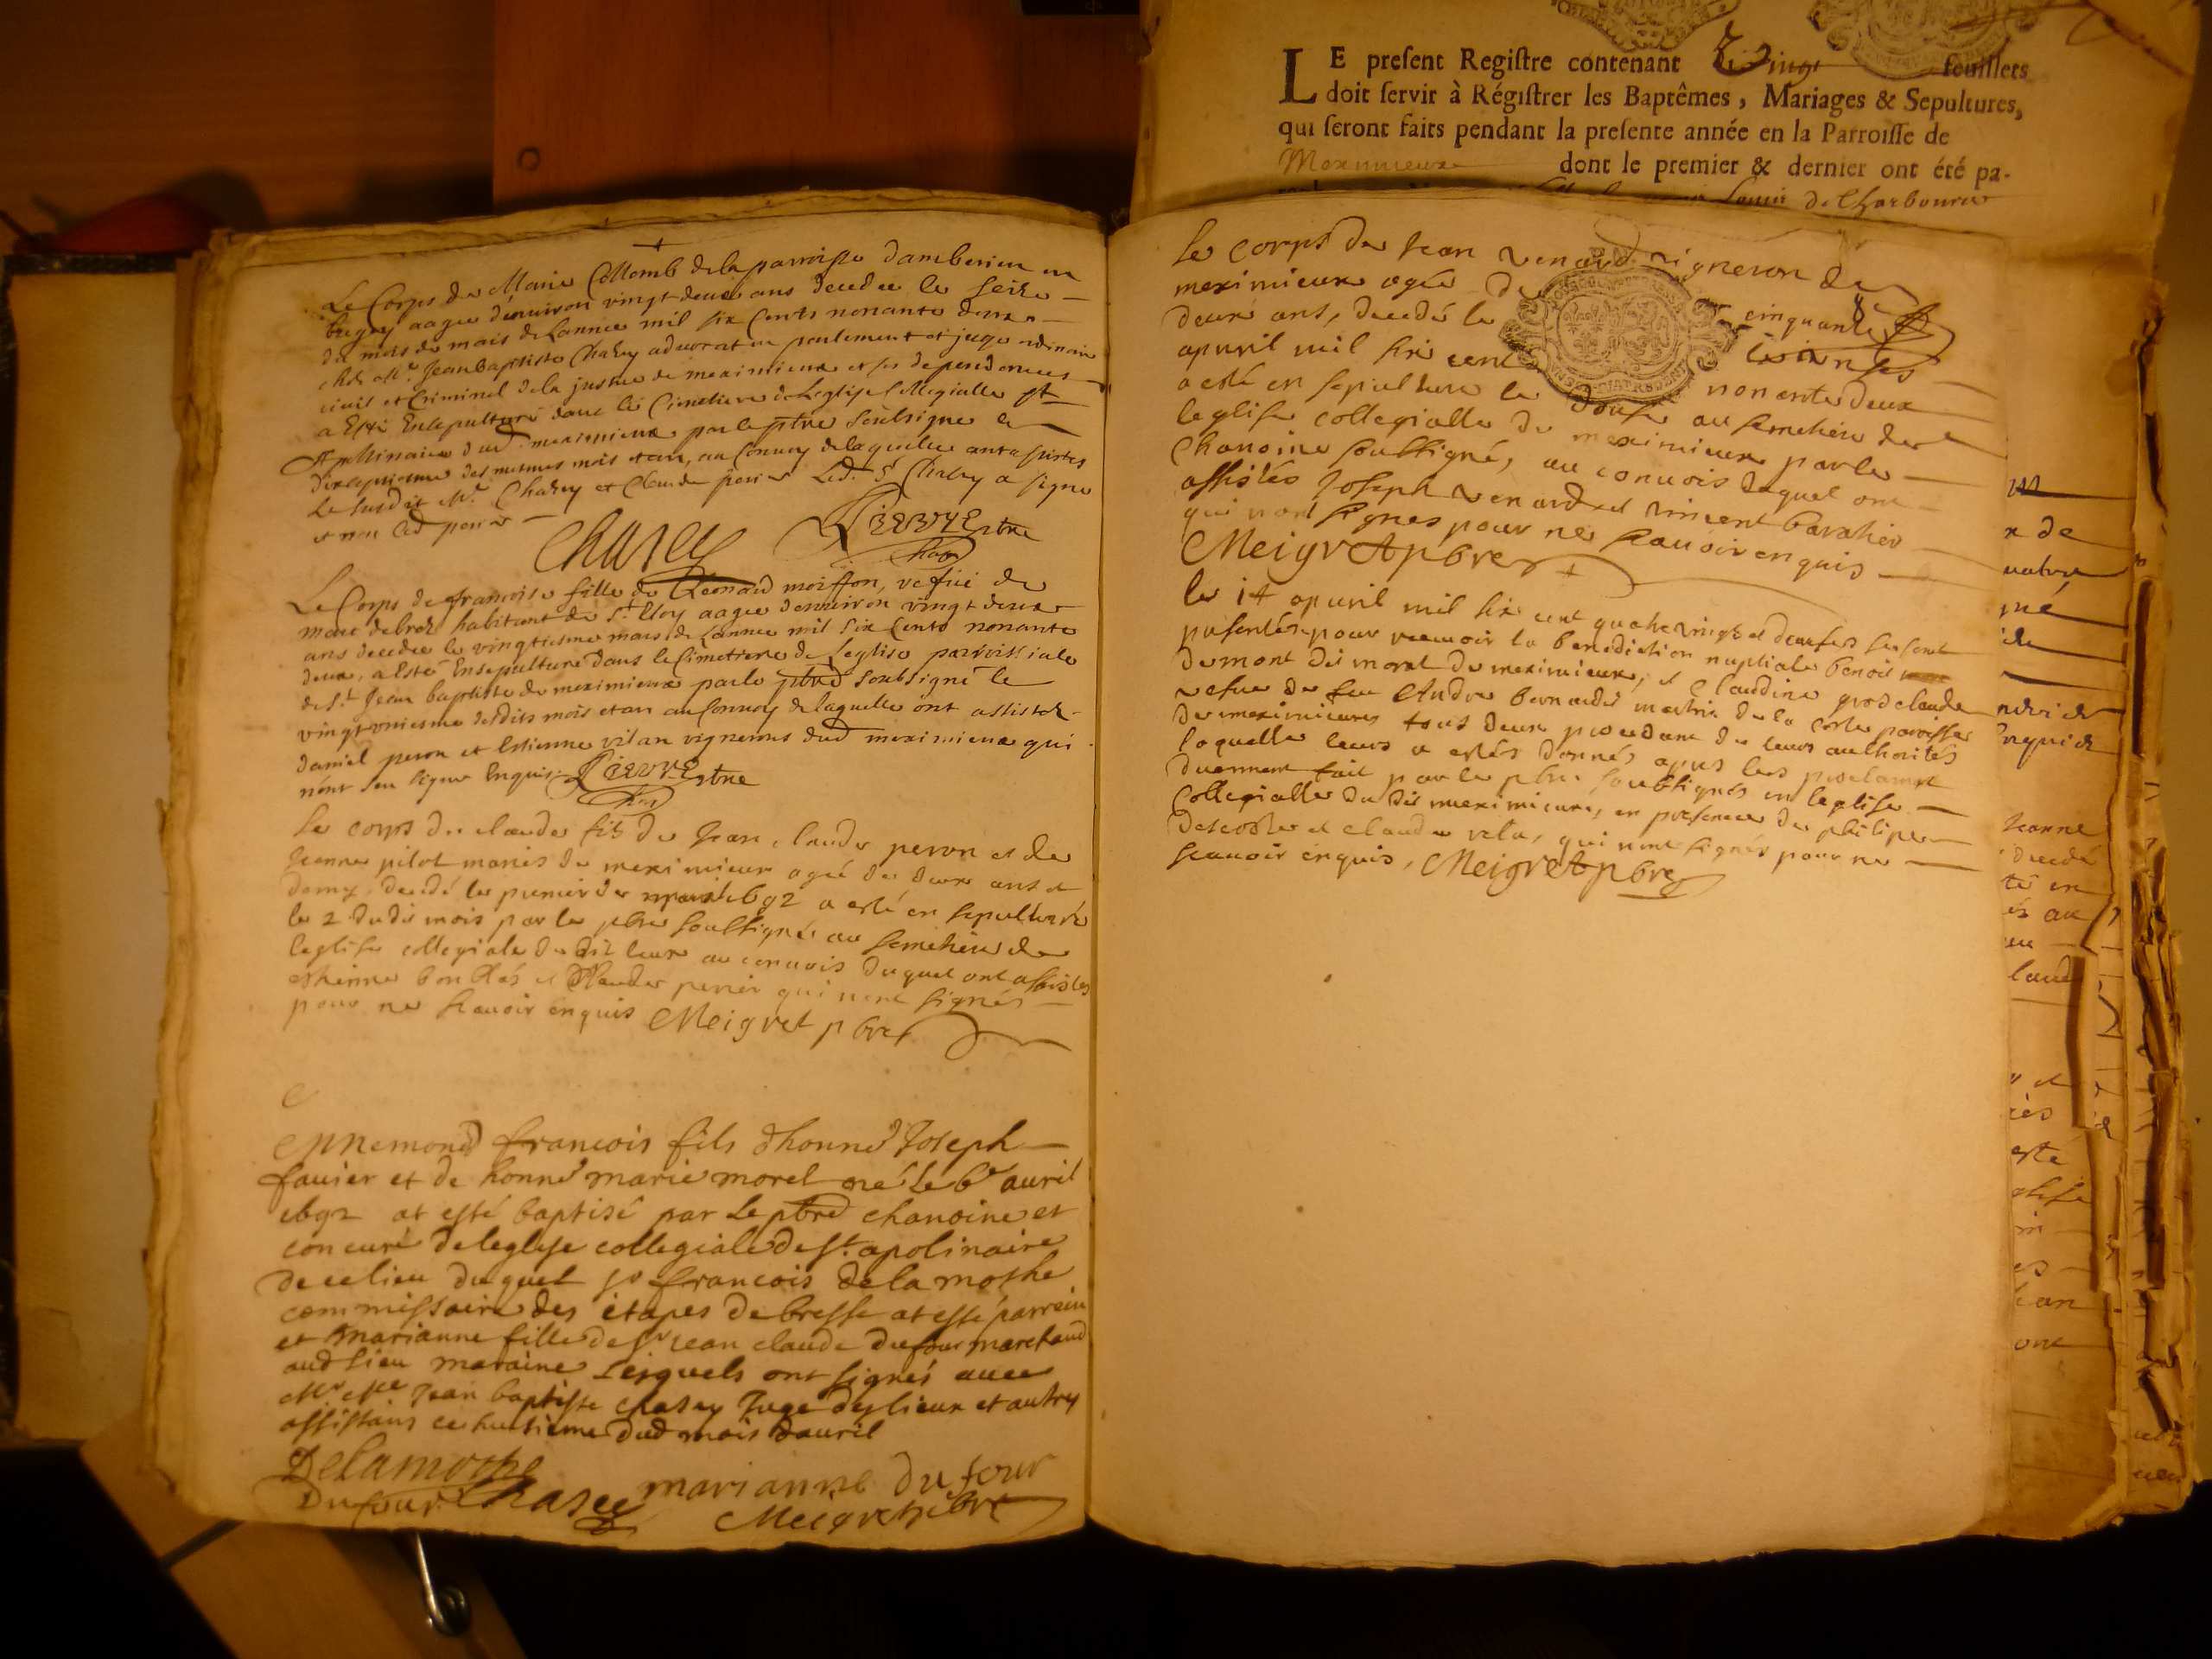 Le Corps de Marie Collomb de la parroisse damberieu en
bugey aagee denuiron vingt deux ans decedee le seize
du mois de mars de Lannee mil six Cents nonante deux
chés Mr. Jean Baptiste Chasey aduocat en parlement et juge ordinaire
ciuil et Criminel de la justice de meximieux et ses dependences
a Esté Ensepulturé dans le Cimetiere de Leglise Collegialle St
Appllinaire dud meximieux par le ptre Soubsigné le
dixseptiesme des mesmes mois et an, au Conuoy de laquelle ont assistes
Le susdit Mr. Chasey et Claude perier Led. Sr Chasey a signé
et non led perier
Chasey
Le Corps de francoise fille de Leonard moisson, vefue de
marc habitant de St. Eloy aagee denuiron vingt deux
ans decedee le vingtiesme mars de Lannee mil six Cents nonante
deux, a Esté Ensepulturé dans le Cimetiere de Leglise parroissiale
de St. Jean baptiste de meximieux par le pbre soubsigné le
vingt vniesme desdits mois et an au Conuoy de laquelle ont assistéz
daniel peron et Estienne vilan vignerons dud meximieux qui
nont seu signer Enquis
le corps de claude fils de Jean claude peron et de
Jeanne pilot mariés de meximieux agé de deux ans et
demy, decedé le premier de apuril 1692 a esté en sepulturé
le 2 dudit mois par le pbre soubsigné au semetiere de
leglise collegiale du dit lieux au conuois duquel ont assistes
estienne et Claude perier qui nont signés
pour ne scauoir enquis Meigret pbre
Ennemond francois fils dhonne Joseph
fauier et de honne marie morel né le 6e auril
1692 at esté baptisé par le pbre chanoine et
concuré de leglise collegiale de St. apolinaire
de ce lieu duquel sr francois de la mothe
commissaire des étapes de bresse at esté parrein
et marianne fille de sr jean claude dufour marchand
aud lieu maraine Lesquels ont signés auec
Mr Me Jean baptiste chasey Juge desd lieux et autres
assistans ce huitieme dud mois dauril
Delamothe
Dufour Chasey marianne du four
Meigret pbre
LE present Registre contenant Vingt feuillets
doit servir à Régistrer les Baptêmes, Mariages & Sepultures,
qui seront faits pendant la presente année en la Parroisse de
Meximieux dont le premier & dernier ont été pa-
Louis de Charbonnier
le corps de Jean venard vigneron de
meximieux agée de cinquante
deux ans, decedé le
apuril mil six cent nonante deux
a esté en sepulture le douse au semetiere de
leglise collegialle de meximieux par le
Chanoine soubsigné, au conuois duquel ont
assistés Joseph venard et vincent
qui nont signes pour ne scauoir enquis
Meigret pbre
le 14 apuril mil six cent quatre vingt et douse se sont
presentés pour receuoir la benediction nuptiale benois
dumont dit morat de meximieux, et claudine grosclaude
vefue de feu Andre bernardet de la coste paroisse
de meximieux tous deux procedant de leurs authorités
laquelle leurs a estés donnés apres les proclamat
duement fait par le pbre soubsignés en leglise
Collegialle du dit meximieux, en presence de philipe
descoste et claude vela, qui nont signés pour ne
scauoir enquis, Meigret pbre